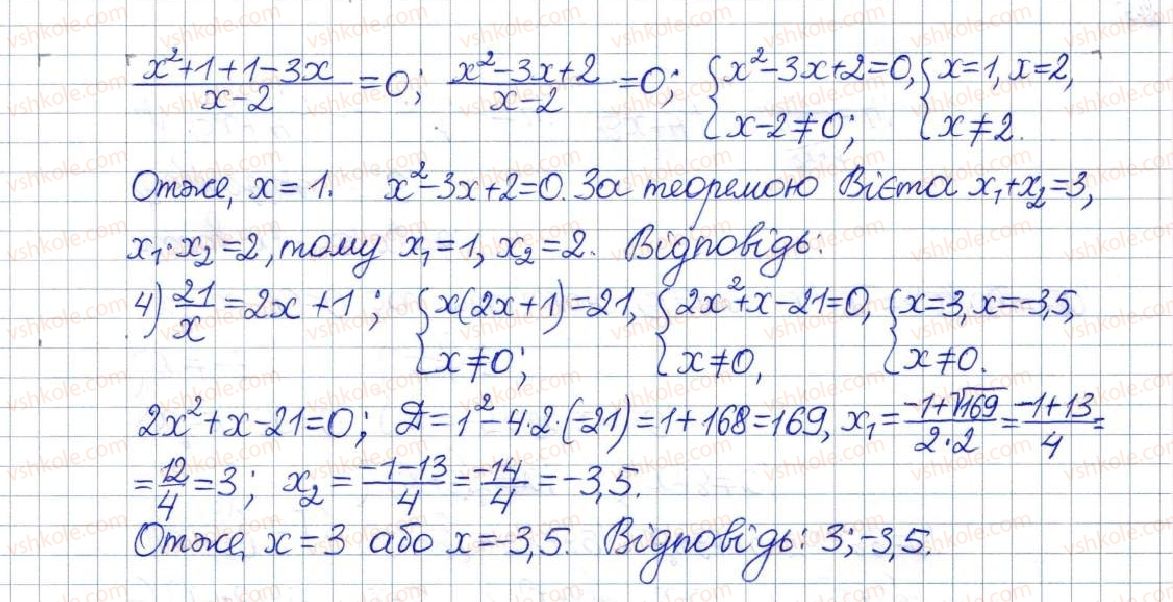 (x²+1+1-3x)/(x-2)=0; (x²-3x+2)/(x-2)=0; {x²-3x+2=0, x-2≠0; {x=1, x=2, x≠2.
Отже, x=1. x²-3x+2=0. За теоремою Вієта x₁+x₂=3,
x₁·x₂=2, тому x₁=1, x₂=2. Відповідь:
4) 21/x=2x+1; {x(2x+1)=21, x≠0; {2x²+x-21=0, x≠0, {x=3, x=-3,5, x≠0.
2x²+x-21=0; Д=1²-4·2·(-21)=1+168=169, x₁=(-1+√169)/(2·2)=(-1+13)/4=
=12/4=3; x₂=(-1-13)/4=-14/4=-3,5.
Отже, x=3 або x=-3,5. Відповідь: 3;-3,5.